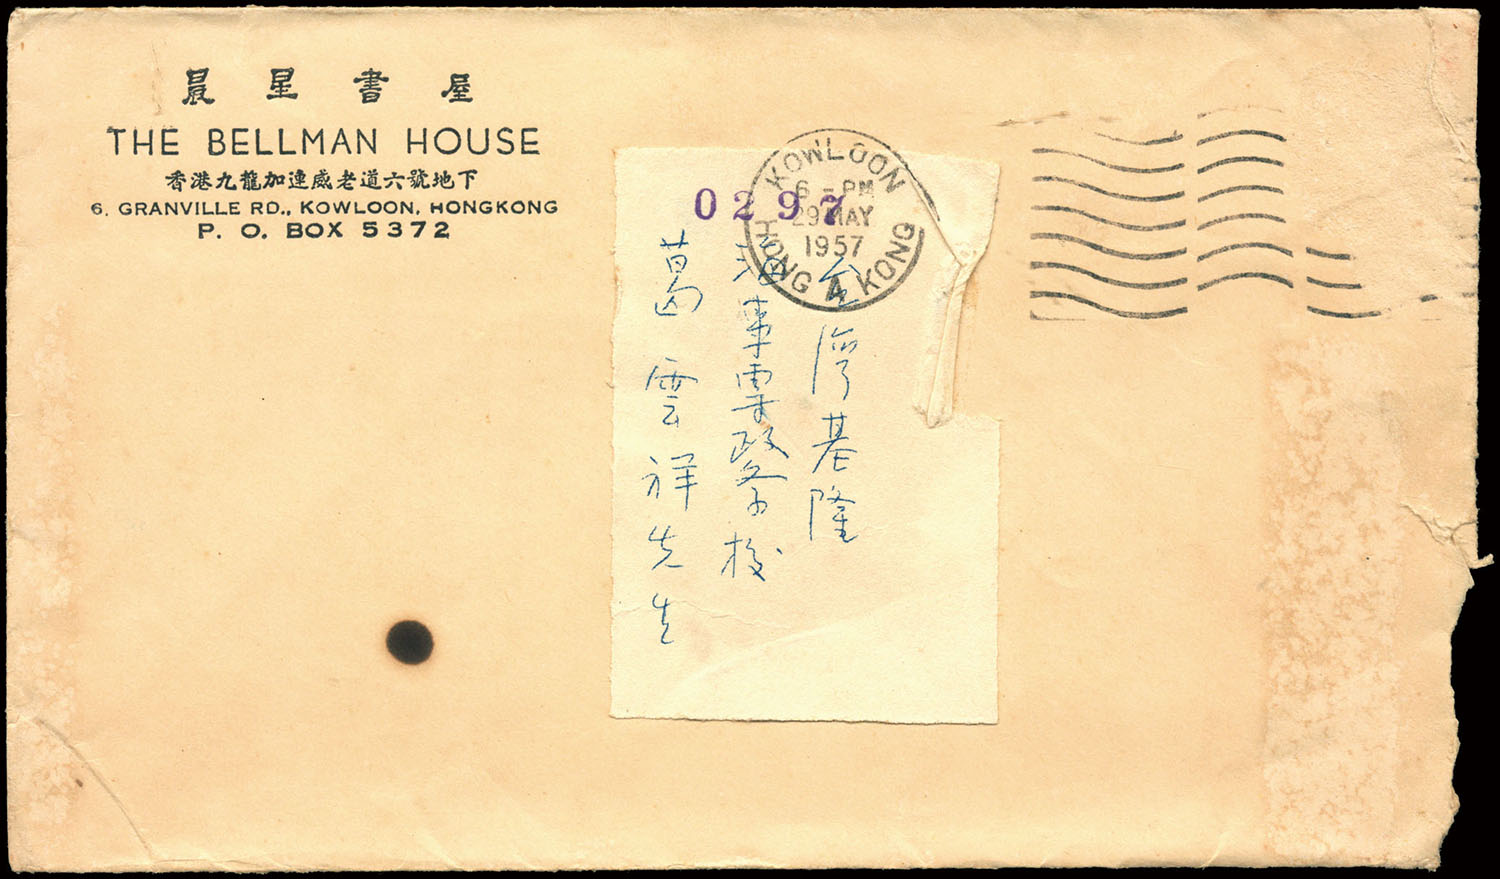 晨星書屋
THE BELLMAN HOUSE
香港九龍加連威老道六號地下
6, GRANVILLE RD., KOWLOON, HONGKONG
P. O. BOX 5372
0297
KOWLOON
6 - PM
29 MAY
1957
HONG KONG
台灣基隆
海軍電政學校
葛雲祥先生